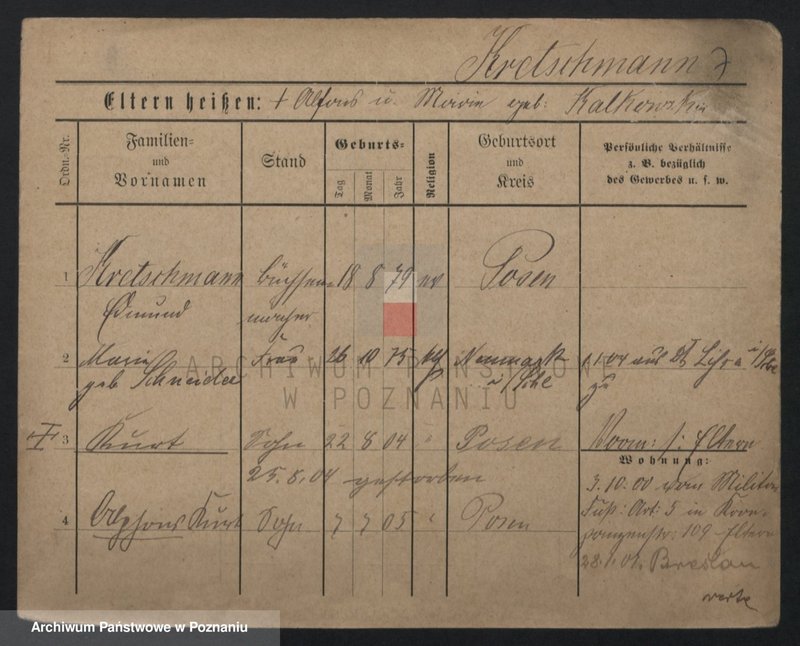 Kretschmann
Eltern heißen: + Alfons u. Marie geb: Kalkowska
Ordn.-Nr.
Familien-
und
Vornamen
Stand
Geburts-
Tag
Monat
Jahr
Religion
Geburtsort
und
Kreis
Persönliche Verhältnisse
z. B. bezüglich
des Gewerbes u. s. w.
1 Kretschmann Büchsen- 18 8 79 ev Posen
Edmund macher
2 Marie Frau 26 10 75 Neumark
geb Schneider zu
3 Kurt Sohn 22 8 04 " Posen Vorm: s: Eltern
25.8.04 gestorben
Wohnung:
3.10.00 vom Militär
Fuß: Art: 5 in
4 Alphons Kurt Sohn 7 7 05 " Posen
109 Eltern
28.1.01. Breslau
verte
ARCHIWUM PAŃSTWOWE
W POZNANIU
Archiwum Państwowe w Poznaniu